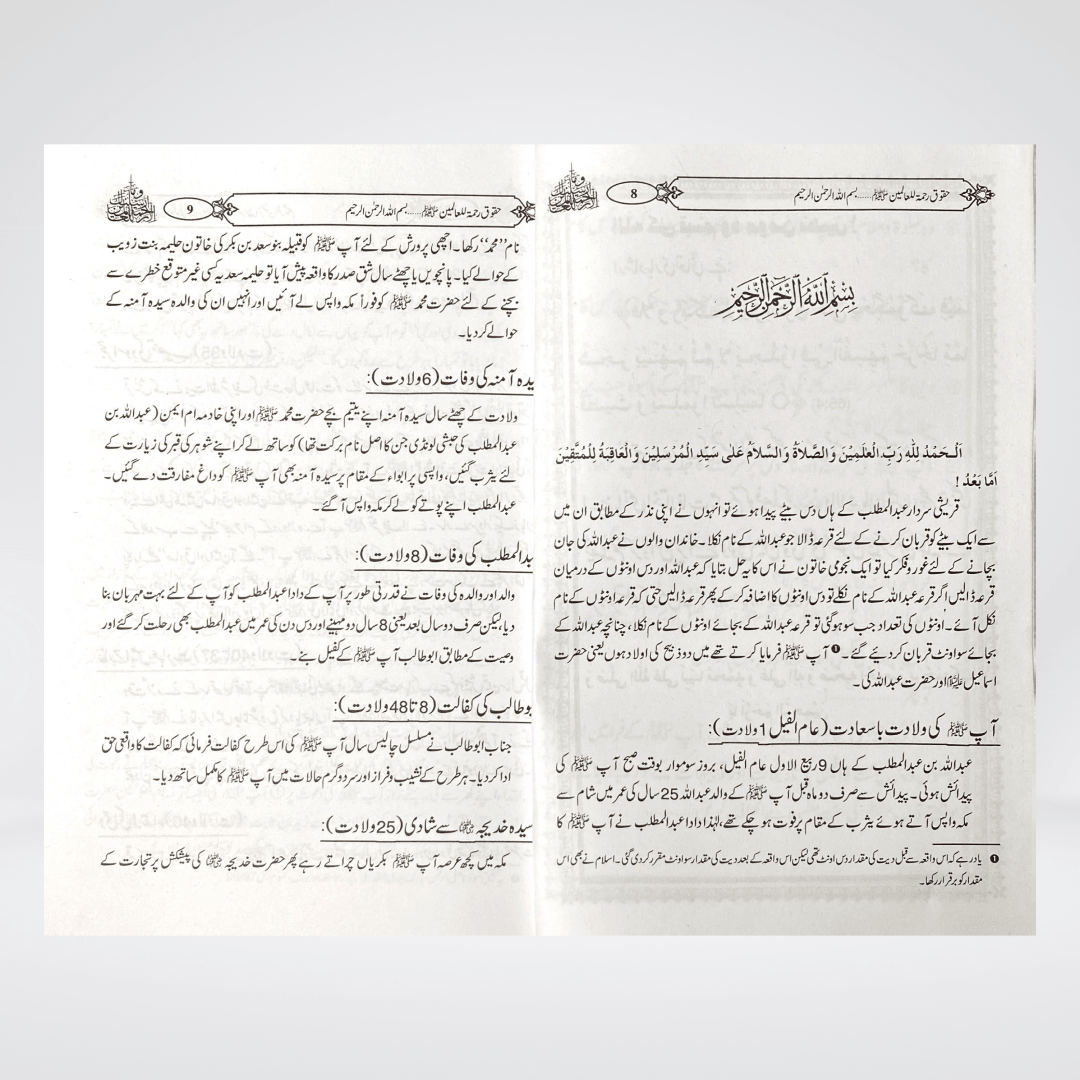 حقوق رحمۃ للعالمین ﷺ......بسم اللہ الرحمٰن الرحیم
8
بِسْمِ اللّٰهِ الرَّحْمٰنِ الرَّحِيْمِ
اَلْحَمْدُ لِلّٰهِ رَبِّ الْعٰلَمِيْنَ وَالصَّلاَةُ وَالسَّلاَمُ عَلٰى سَيِّدِ الْمُرْسَلِيْنَ وَالْعَاقِبَةُ لِلْمُتَّقِيْنَ
اَمَّا بَعْدُ !
قریشی سردار عبدالمطلب کے ہاں دس بیٹے پیدا ہوئے تو انہوں نے اپنی نذر کے مطابق ان میں
سے ایک بیٹے کو قربان کرنے کے لئے قرعہ ڈالا جو عبداللہ کے نام نکلا۔ خاندان والوں نے عبداللہ کی جان
بچانے کے لئے غور و فکر کیا تو ایک نجومی خاتون نے اس کا یہ حل بتایا کہ عبداللہ اور دس اونٹوں کے درمیان
قرعہ ڈالیں اگر قرعہ عبداللہ کے نام نکلے تو دس اونٹوں کا اضافہ کر کے پھر قرعہ ڈالیں حتی کہ قرعہ اونٹوں کے نام
نکل آئے۔ اونٹوں کی تعداد جب سو ہوگئی تو قرعہ عبداللہ کے بجائے اونٹوں کے نام نکلا، چنانچہ عبداللہ کے
بجائے سو اونٹ قربان کر دیئے گئے۔❶ آپ ﷺ فرمایا کرتے تھے میں دو ذبیح کی اولاد ہوں یعنی حضرت
اسماعیل علیہ السلام اور حضرت عبداللہ کی۔
آپ ﷺ کی ولادت باسعادت (عام الفیل 1 ولادت):
عبداللہ بن عبدالمطلب کے ہاں 9 ربیع الاول عام الفیل، بروز سوموار بوقت صبح آپ ﷺ کی
پیدائش ہوئی۔ پیدائش سے صرف دو ماہ قبل آپ ﷺ کے والد عبداللہ 25 سال کی عمر میں شام سے
مکہ واپس آتے ہوئے یثرب کے مقام پر فوت ہو چکے تھے، لہٰذا دادا عبدالمطلب نے آپ ﷺ کا
❶ یاد رہے کہ اس واقعہ سے قبل دیت کی مقدار دس اونٹ تھی لیکن اس واقعہ کے بعد دیت کی مقدار سو اونٹ مقرر کر دی گئی۔ اسلام نے بھی اس
مقدار کو برقرار رکھا۔
حقوق رحمۃ للعالمین ﷺ......بسم اللہ الرحمٰن الرحیم
9
نام ”محمد“ رکھا۔ اچھی پرورش کے لئے آپ ﷺ کو قبیلہ بنو سعد بن بکر کی خاتون حلیمہ بنت زویب
کے حوالے کیا۔ پانچویں یا چھٹے سال شق صدر کا واقعہ پیش آیا تو حلیمہ سعدیہ کسی غیر متوقع خطرے سے
بچنے کے لئے حضرت محمد ﷺ کو فوراً مکہ واپس لے آئیں اور انہیں ان کی والدہ سیدہ آمنہ کے
حوالے کر دیا۔
یدہ آمنہ کی وفات (6 ولادت):
ولادت کے چھٹے سال سیدہ آمنہ اپنے یتیم بچے حضرت محمد ﷺ اور اپنی خادمہ ام ایمن (عبداللہ بن
عبدالمطلب کی حبشی لونڈی جن کا اصل نام برکت تھا) کو ساتھ لے کر اپنے شوہر کی قبر کی زیارت کے
لئے یثرب گئیں، واپسی پر ابواء کے مقام پر سیدہ آمنہ بھی آپ ﷺ کو داغ مفارقت دے گئیں۔
عبدالمطلب اپنے پوتے کو لے کر مکہ واپس آگئے۔
بدالمطلب کی وفات (8 ولادت):
والد اور والدہ کی وفات نے قدرتی طور پر آپ کے دادا عبدالمطلب کو آپ کے لئے بہت مہربان بنا
دیا، لیکن صرف دو سال بعد یعنی 8 سال دو مہینے اور دس دن کی عمر میں عبدالمطلب بھی رحلت کر گئے اور
وصیت کے مطابق ابوطالب آپ ﷺ کے کفیل بنے۔
بوطالب کی کفالت (8 تا 48 ولادت):
جناب ابوطالب نے مسلسل چالیس سال آپ ﷺ کی اس طرح کفالت فرمائی کہ کفالت کا واقعی حق
ادا کر دیا۔ ہر طرح کے نشیب و فراز اور سرد و گرم حالات میں آپ ﷺ کا مکمل ساتھ دیا۔
سیدہ خدیجہ رضی اللہ عنہا سے شادی (25 ولادت):
مکہ میں کچھ عرصہ آپ ﷺ بکریاں چراتے رہے پھر حضرت خدیجہ رضی اللہ عنہا کی پیشکش پر تجارت کے